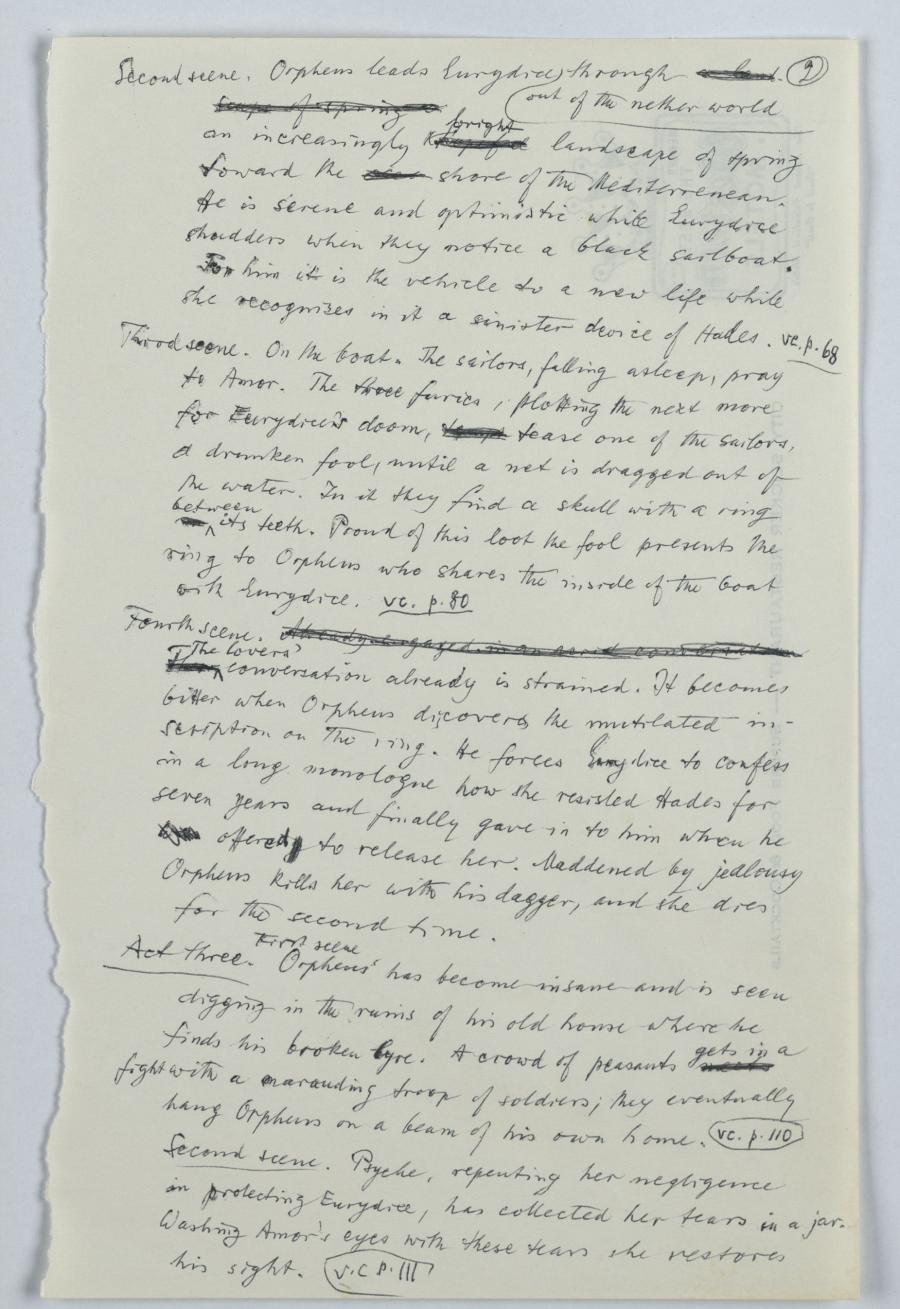 Second scene. Orpheus leads Eurydice through a land. 2
scape of spring out of the nether world
an increasingly bright landscape of spring
toward the shore of the Mediterrenean.
He is serene and optimistic while Eurydice
shudders when they notice a black sailboat.
For him it is the vehicle to a new life while
she recognizes in it a sinister device of Hades. vc. p. 68
Third scene. On the boat. The sailors, falling asleep, pray
to Amor. The three furies, plotting the next move
for Eurydice's doom, tease one of the sailors,
a drunken fool, until a net is dragged out of
the water. In it they find a skull with a ring
between its teeth. Proud of this loot the fool presents the
ring to Orpheus who shares the inside of the boat
with Eurydice. vc. p. 80
Fourth scene. Already engaged in an acrid conversation
The lovers' conversation already is strained. It becomes
bitter when Orpheus discovers the mutilated in-
scription on the ring. He forces Eurydice to confess
in a long monologue how she resisted Hades for
seven years and finally gave in to him when he
offered to release her. Maddened by jealousy
Orpheus kills her with his dagger, and she dies
for the second time.
Act three. First scene Orpheus has become insane and is seen
digging in the ruins of his old house where he
finds his broken lyre. A crowd of peasants gets in a
fight with a marauding troop of soldiers; they eventually
hang Orpheus on a beam of his own home. vc. p. 110
Second scene. Psyche, repenting her negligence
in protecting Eurydice, has collected her tears in a jar.
Washing Amor's eyes with these tears she restores
his sight. v.c p. 111